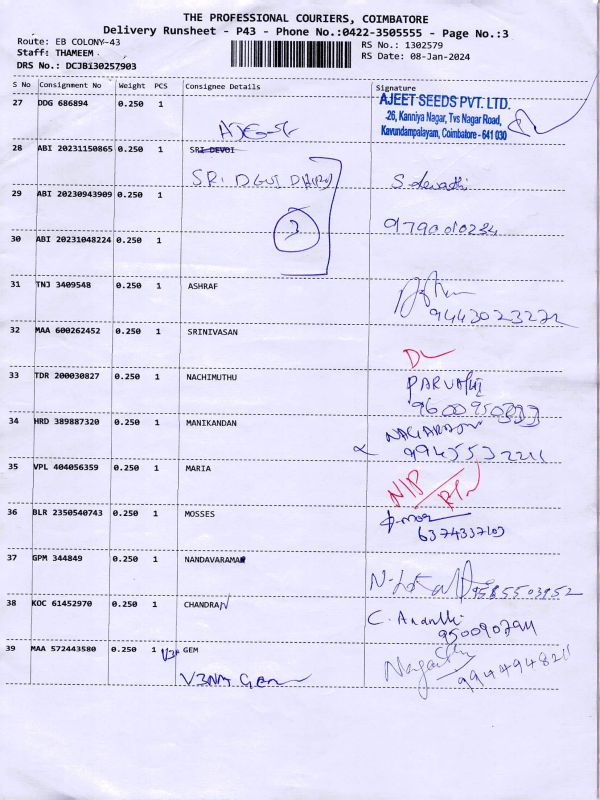 THE PROFESSIONAL COURIERS, COIMBATORE
Delivery Runsheet - P43 - Phone No.:0422-3505555 - Page No.:3
Route: EB COLONY-43
Staff: THAMEEM
DRS No.: DCJBi30257903
RS No.: 1302579
RS Date: 08-Jan-2024
S No Consignment No Weight PCS Consignee Details Signature
27 DDG 686894 0.250 1
AJEET SEEDS PVT. LTD.
26, Kanniya Nagar, Tvs Nagar Road,
Kavundampalayam, Coimbatore - 641 030
28 ABI 20231150865 0.250 1 SRI DEVOI
SRI
S. devadhi
29 ABI 20230943909 0.250 1
9790010234
30 ABI 20231048224 0.250 1
3
31 TNJ 3409548 0.250 1 ASHRAF
9443023272
32 MAA 600262452 0.250 1 SRINIVASAN
DL
33 TDR 200030827 0.250 1 NACHIMUTHU
9600950333
34 HRD 389887320 0.250 1 MANIKANDAN
NAGARAJAN
9945532211
35 VPL 404056359 0.250 1 MARIA
36 BLR 2350540743 0.250 1 MOSSES
6374337103
37 GPM 344849 0.250 1 NANDAVARAMA
9585503952
38 KOC 61452970 0.250 1 CHANDRAN
C. Ananthi
39 MAA 572443580 0.250 1 GEM
V3NA Gem